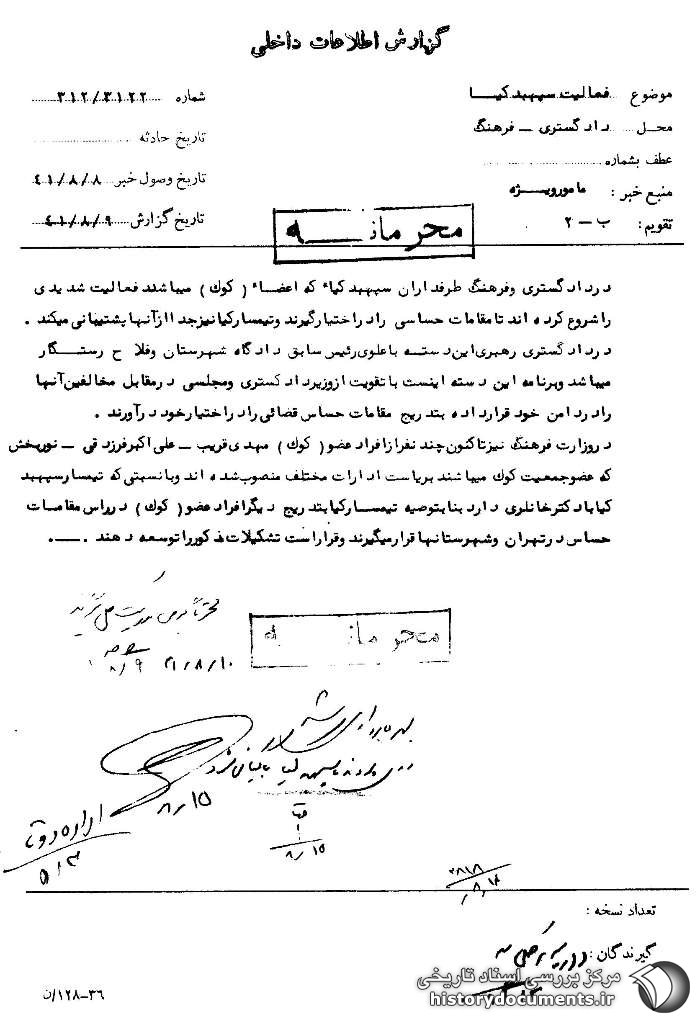 گزارش اطلاعات داخلی
موضوع فعالیت سپهبد کیا
شماره ۳۱۲/۳۱۲۲
محل دادگستری - فرهنگ
تاریخ حادثه
عطف بشماره
تاریخ وصول خبر ۴۱/۸/۸
منبع خبر: مامور ویژه
تاریخ گزارش ۴۱/۸/۹
تقویم: ب - ۲
محرمانه
در دادگستری و فرهنگ طرفداران سپهبد کیا که اعضاء (کوك) میباشند فعالیت شدیدی
را شروع کرده اند تا مقامات حساسی را در اختیار گیرند و تیمسار کیا نیز جدا از آنها پشتیبانی میکند .
در دادگستری رهبری این دسته با علوی رئیس سابق دادگاه شهرستان و فلاح رستگار
میباشد و برنامه این دسته اینست با تقویت از وزیر دادگستری و مجلسی در مقابل مخالفین آنها
را در دامن خود قرار داده بتدریج مقامات حساس قضائی را در اختیار خود در آورند .
در وزارت فرهنگ نیز تا کنون چند نفر از افراد عضو (کوك) مهدی قریب - علی اکبر فرزدقی - نوربخش
که عضو جمعیت کوك میباشند بریاست ادارات مختلف منصوب شده اند و با نسبتی که تیمسار سپهبد
کیا با دکتر خانلری دارد بنا بتوصیه تیمسار کیا بتدریج دیگر افراد عضو (کوك) در راس مقامات
حساس در تهران و شهرستانها قرار میگیرند و قرار است تشکیلات مذکور را توسعه دهند .
محرمانه
۴۱/۸/۱۰
۸/۹
۸/۱۵
۸/۱۵
تعداد نسخه :
گیرندگان :
۳۶-۱۲۸/ن
مرکز بررسی اسناد تاریخی
historydocuments.ir